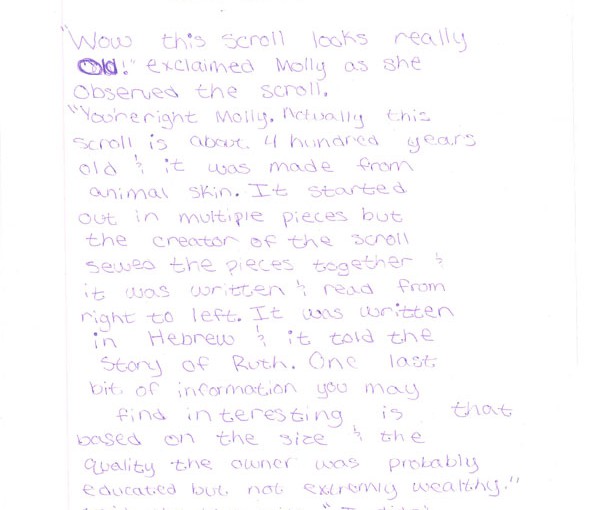 "Wow this scroll looks really
Old!" exclaimed Molly as she
observed the scroll.
"You're right Molly. Actually this
scroll is about 4 hundred years
old & it was made from
animal skin. It started
out in multiple pieces but
the creator of the scroll
sewed the pieces together &
it was written & read from
right to left. It was written
in Hebrew & it told the
story of Ruth. One last
bit of information you may
find interesting is that
based on the size & the
quality the owner was probably
educated but not extremly wealthy."